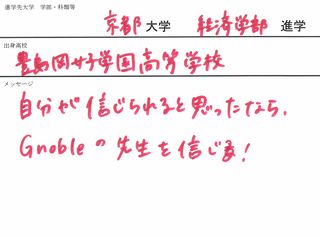 進学先大学 学部・科類等
京都大学 経済学部 進学
出身高校
豊島岡女子学園高等学校
メッセージ
自分が信じられると思ったなら、
Gnobleの先生を信じる!